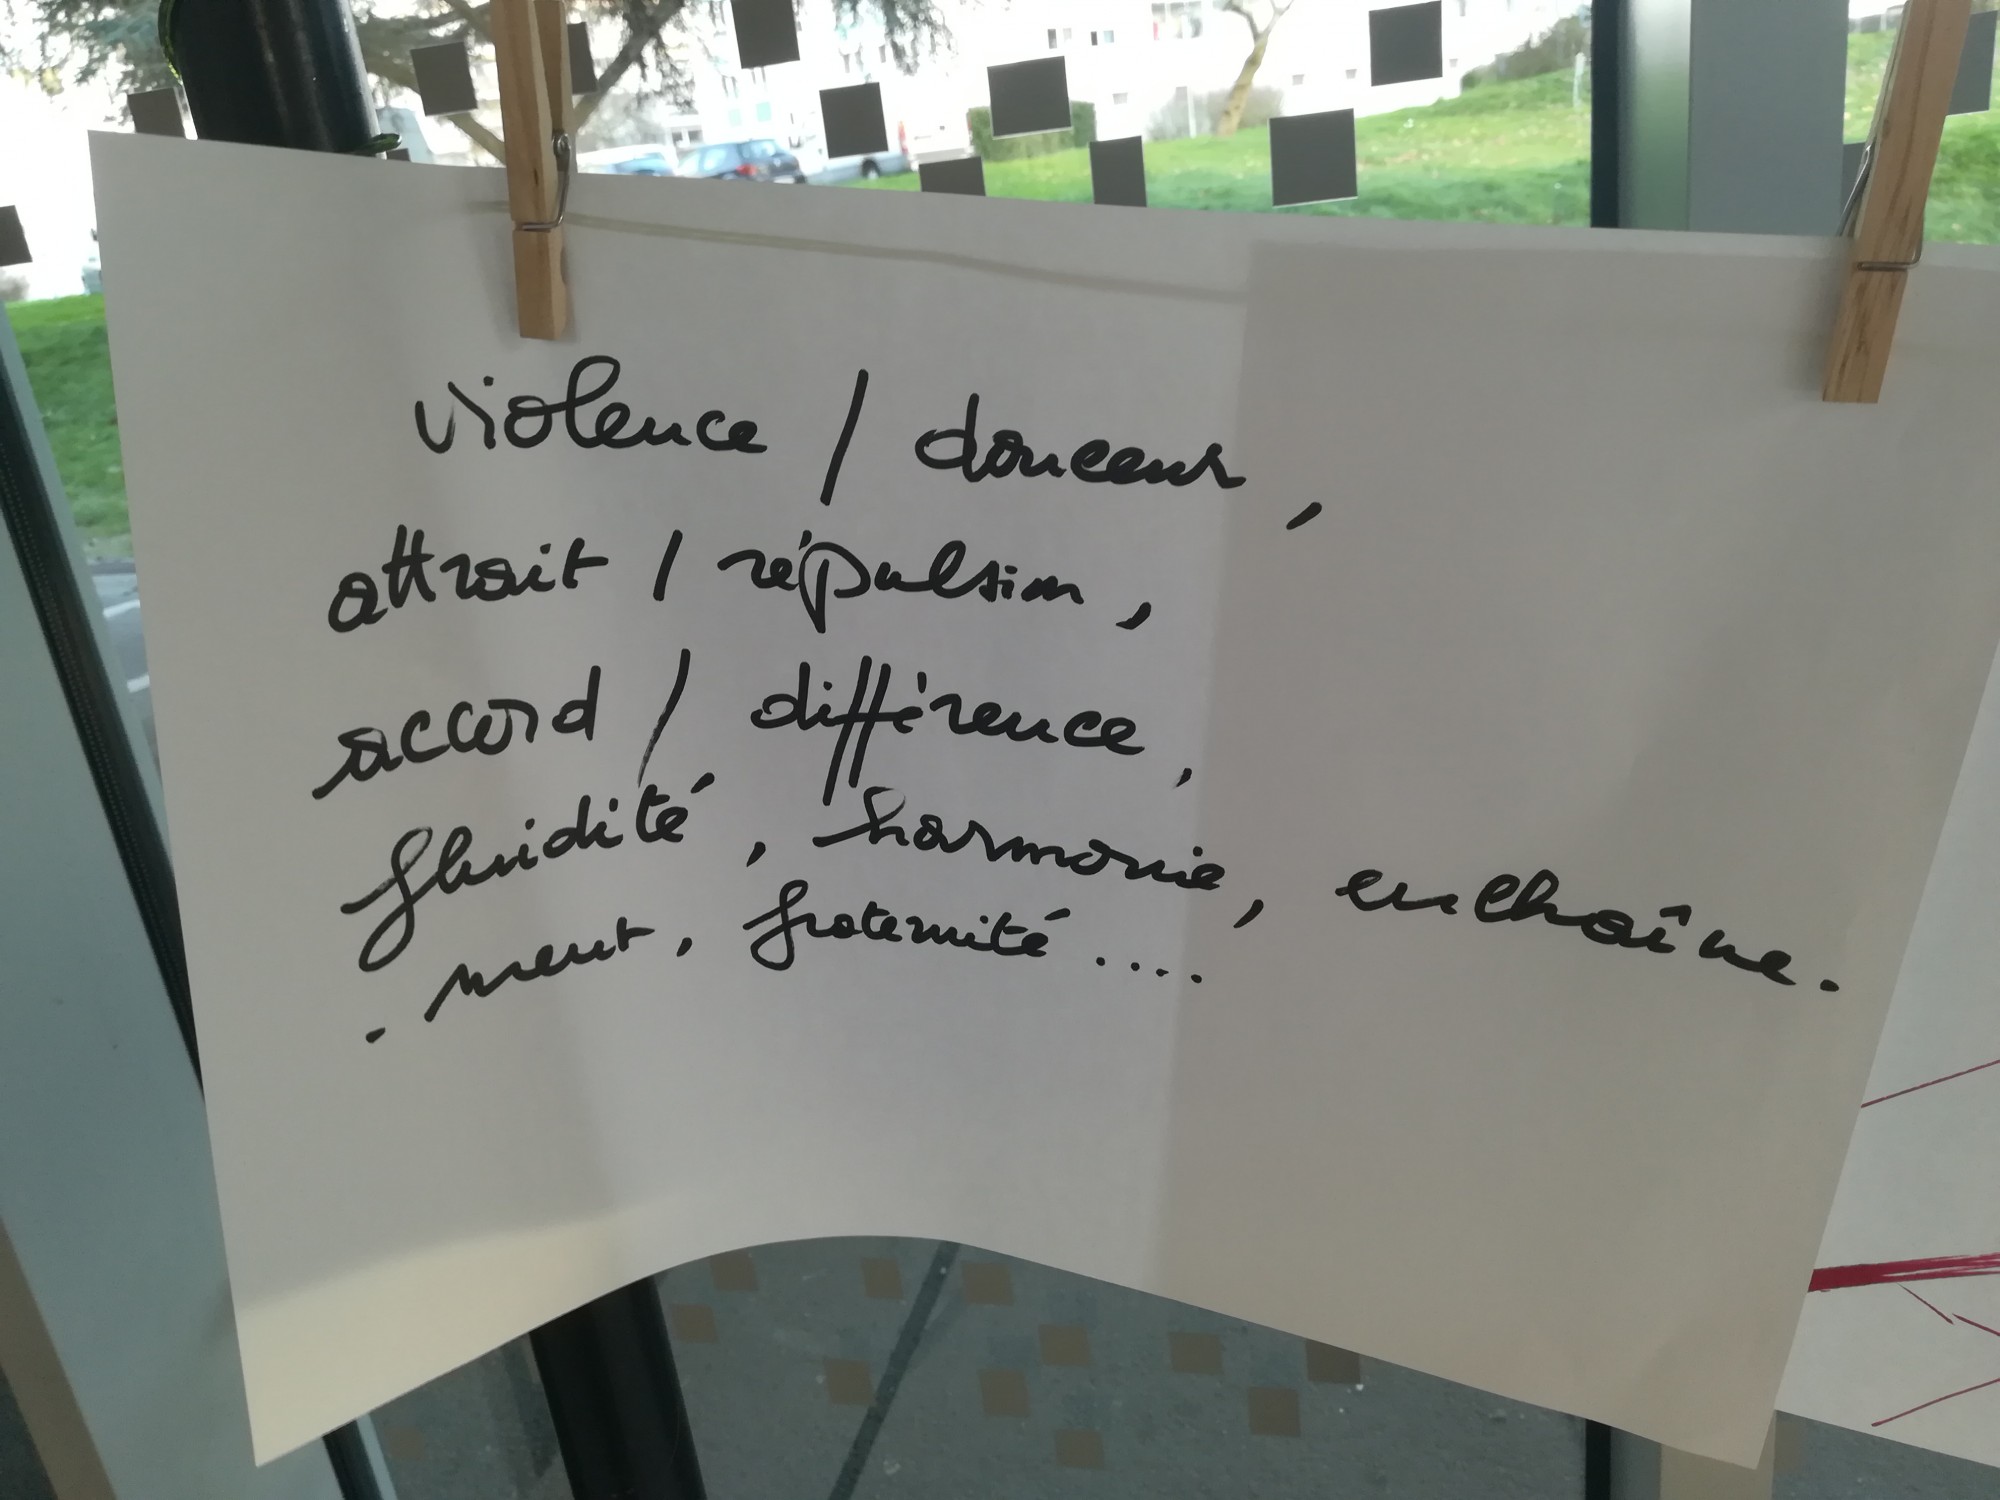 violence / douceur,
attrait / répulsion,
accord / différence,
fluidité, harmonie, enchaîne.
. ment, fraternité....